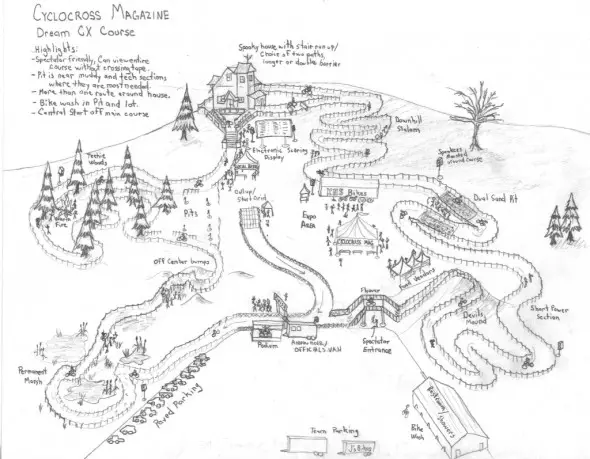 CYCLOCROSS MAGAZINE
DREAM CX COURSE
Highlights:
-Spectator friendly, Can view entire
course without crossing tape.
- Pit is near muddy and tech sections
where they are most needed.
- More than one route around house.
- Bike wash in Pit and lot.
- Central Start off main course
Spooky house with stair run up/
Choice of two paths,
longer or double barrier
Downhill
Slalom
Electronic Scoring
Display
Speakers
around course
Techie
Woods
Callup/
Start Grid
Dual Sand Pit
Fire
Pits
Expo
Area
Bikes
CYCLOCROSS MAG
Off Camber bumps
Food Vendors
Flyover
Short Power
Section
Devils
Mound
Podium
OFFICIALS VAN
Spectator
Entrance
Permanent
Marsh
Paved Parking
Restrooms/Showers
Bike
Wash
Team Parking